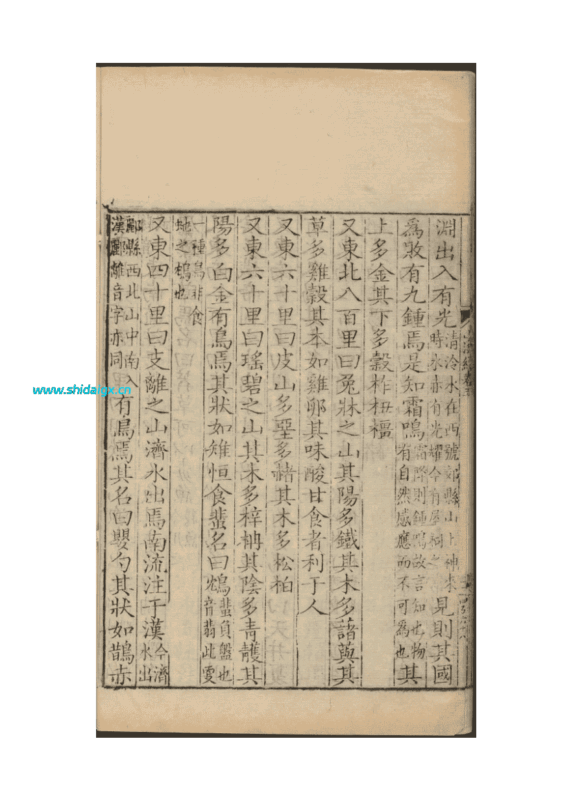 淵出入有光清泠水在西號郊縣山上神來時水赤有光燿今有屋祠之見則其國
爲敗有九鍾焉是知霜鳴霜降則鍾鳴故言知也物有自然感應而不可爲也其
上多金其下多穀柞杻橿
又東北八百里曰兔牀之山其陽多鐵其木多藷藇其
草多雞穀其本如雞卵其味酸甘食者利于人
又東六十里曰皮山多堊多赭其木多松柏
又東六十里曰瑤碧之山其木多梓枬其陰多青雘其
陽多白金有鳥焉其狀如雉恒食蜚名曰鴆蜚負盤也音翡此更
一種鳥非食蛇之鴆也
又東四十里曰支離之山濟水出焉南流注于漢今濟水出
酈縣西北山中南入漢酈離音字亦同有鳥焉其名曰嬰勺其狀如鵲赤
www.shidaigx.cn